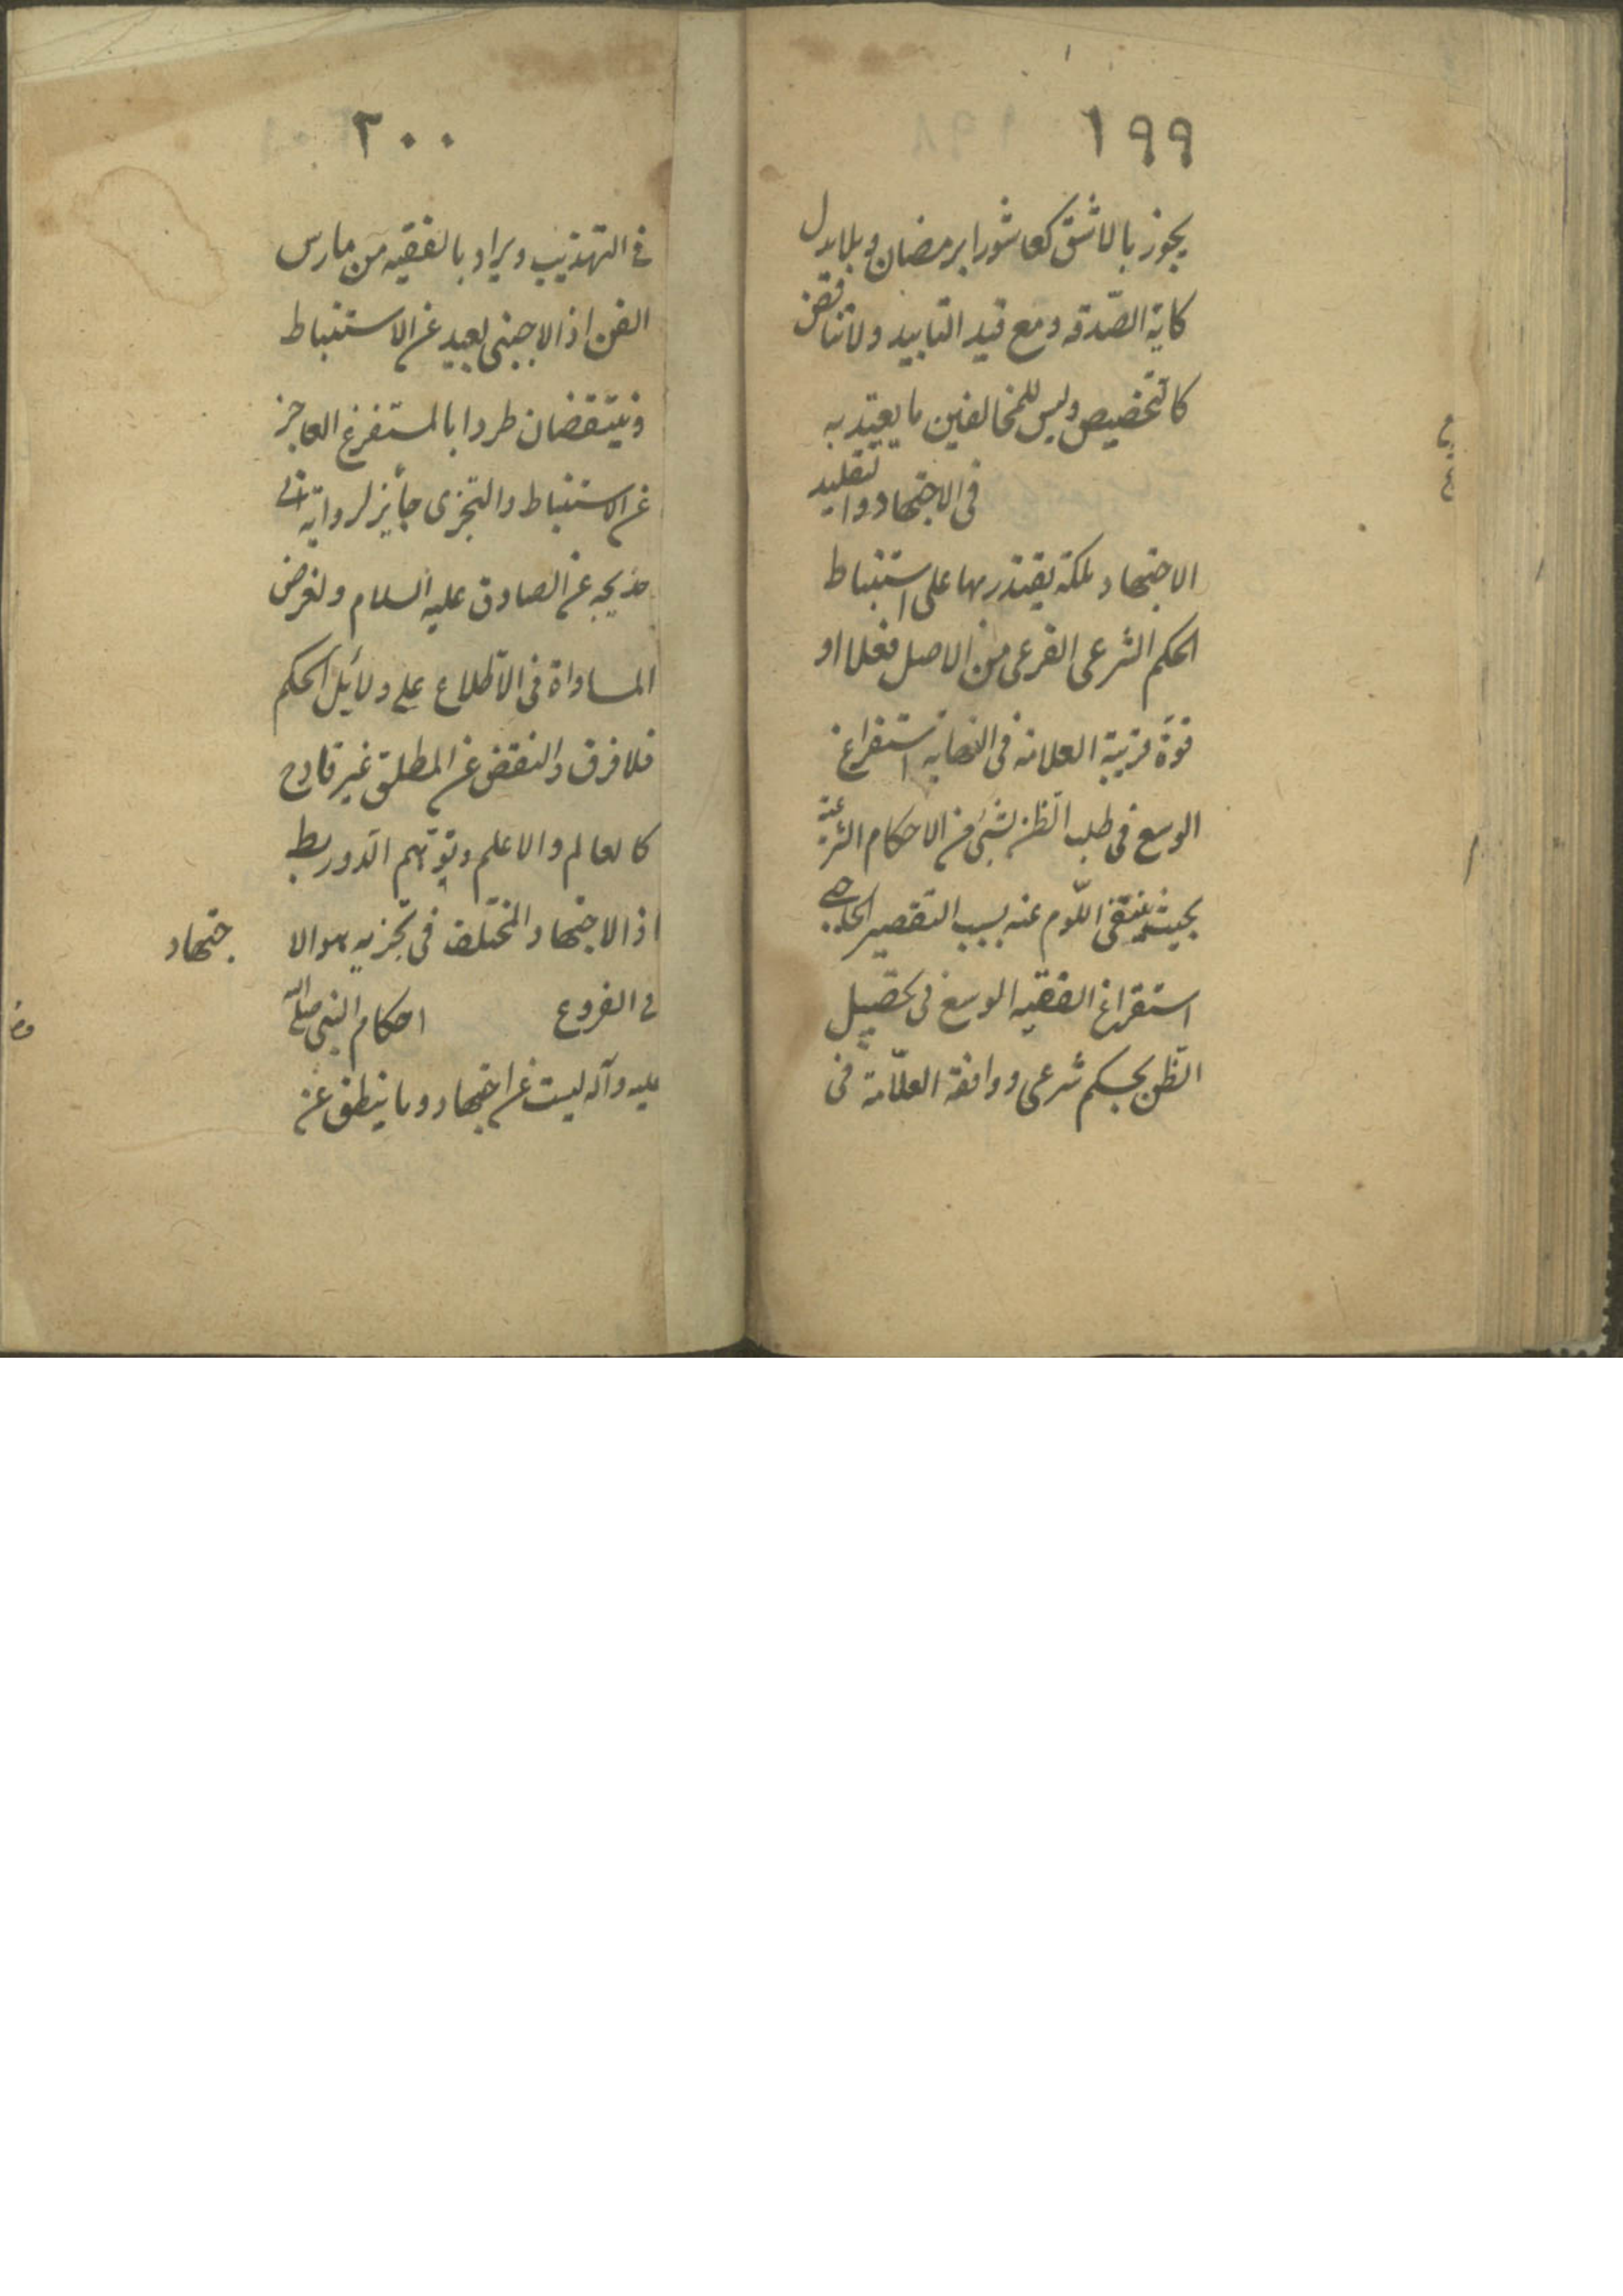 ١٩٩
يجوز بالاشق كعاشورا برمضان وبلا بدل
كاية الصّدقه ومع قيد التابيد ولا تناقض
كالتخصيص وليس للمخالفين ما يعتد به
فى الاجتهاد والتقليد
الاجتهاد ملكة يقتدر بها على استنباط
الحكم الشرعى الفرعى من الاصل فعلا او
قوة قريبة العلامه فى النهايه استفراغ
الوسع فى طلب الظن بشئ من الاحكام الشرعية
بحيث ينتفى اللّوم عنه بسبب التقصير الحاجبى
استفراغ الفقيه الوسع فى تحصيل
الظّن بحكم شرعى ووافقه العلّامة فى
٢٠٠
فى التهذيب ويراد بالفقيه من مارس
الفن اذ الاجنبى بعيد عن الاستنباط
وينتقضان طردا بالمستفرغ العاجز
عن الاستنباط والتجزى جائز لرواية ابى
خديجه عن الصادق عليه السلام ولفرض
المساواة فى الاطلاع على دلائل الحكم
فلا فرق والنقض عن المطلق غير قادح
كالعالم والاعلم وتوهّم الدور بط
اذ الاجتهاد المختلف فى تجزيه هو الا
جتهاد
فى الفروع احكام النبى صلى الله
عليه وآله ليست عن اجتهاد وما ينطق عن